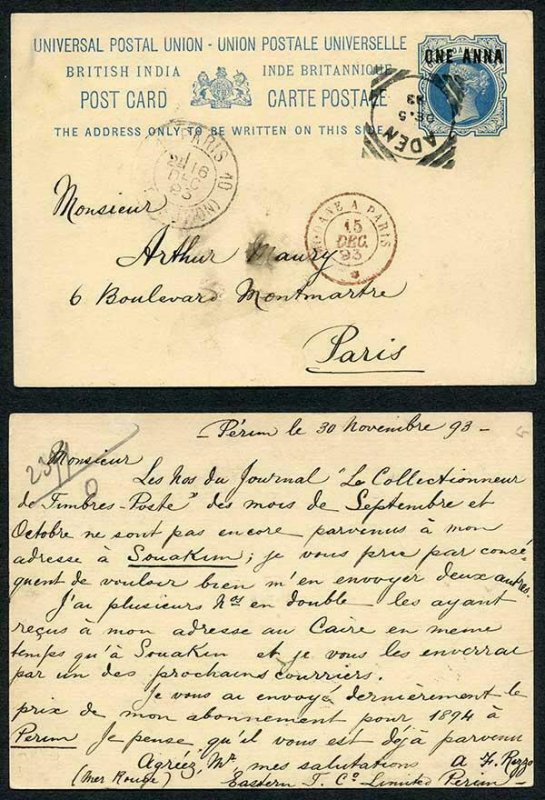 UNIVERSAL POSTAL UNION - UNION POSTALE UNIVERSELLE
BRITISH INDIA INDE BRITANNIQUE
POST CARD CARTE POSTALE
THE ADDRESS ONLY TO BE WRITTEN ON THIS SIDE
ONE ANNA
ADEN
DE. 5
93
PARIS
DEC
93
MODANE A PARIS
15
DEC.
93
Monsieur
Arthur Maury
6 Boulevard Montmartre
Paris
Périm le 30 Novembre 93 -
Monsieur
Les Nos du Journal "Le Collectionneur
de Timbres-Poste" des mois de Septembre et
Octobre ne sont pas encore parvenus à mon
adresse à Souakim; je vous prie par consé-
quent de vouloir bien m'en envoyer deux autres.
J'ai plusieurs Nos en double les ayant
reçus à mon adresse au Caire en meme
temps qu'à Souakin et je vous les enverrai
par un des prochains courriers.
Je vous ai envoyé dernièrement le
prix de mon abonnement pour 1894 à
Perim Je pense qu'il vous est déjà parvenu
Agréez, Mr, mes salutations A. F. Rizzo
(Mer Rouge) Eastern T. Co Limited Perim -